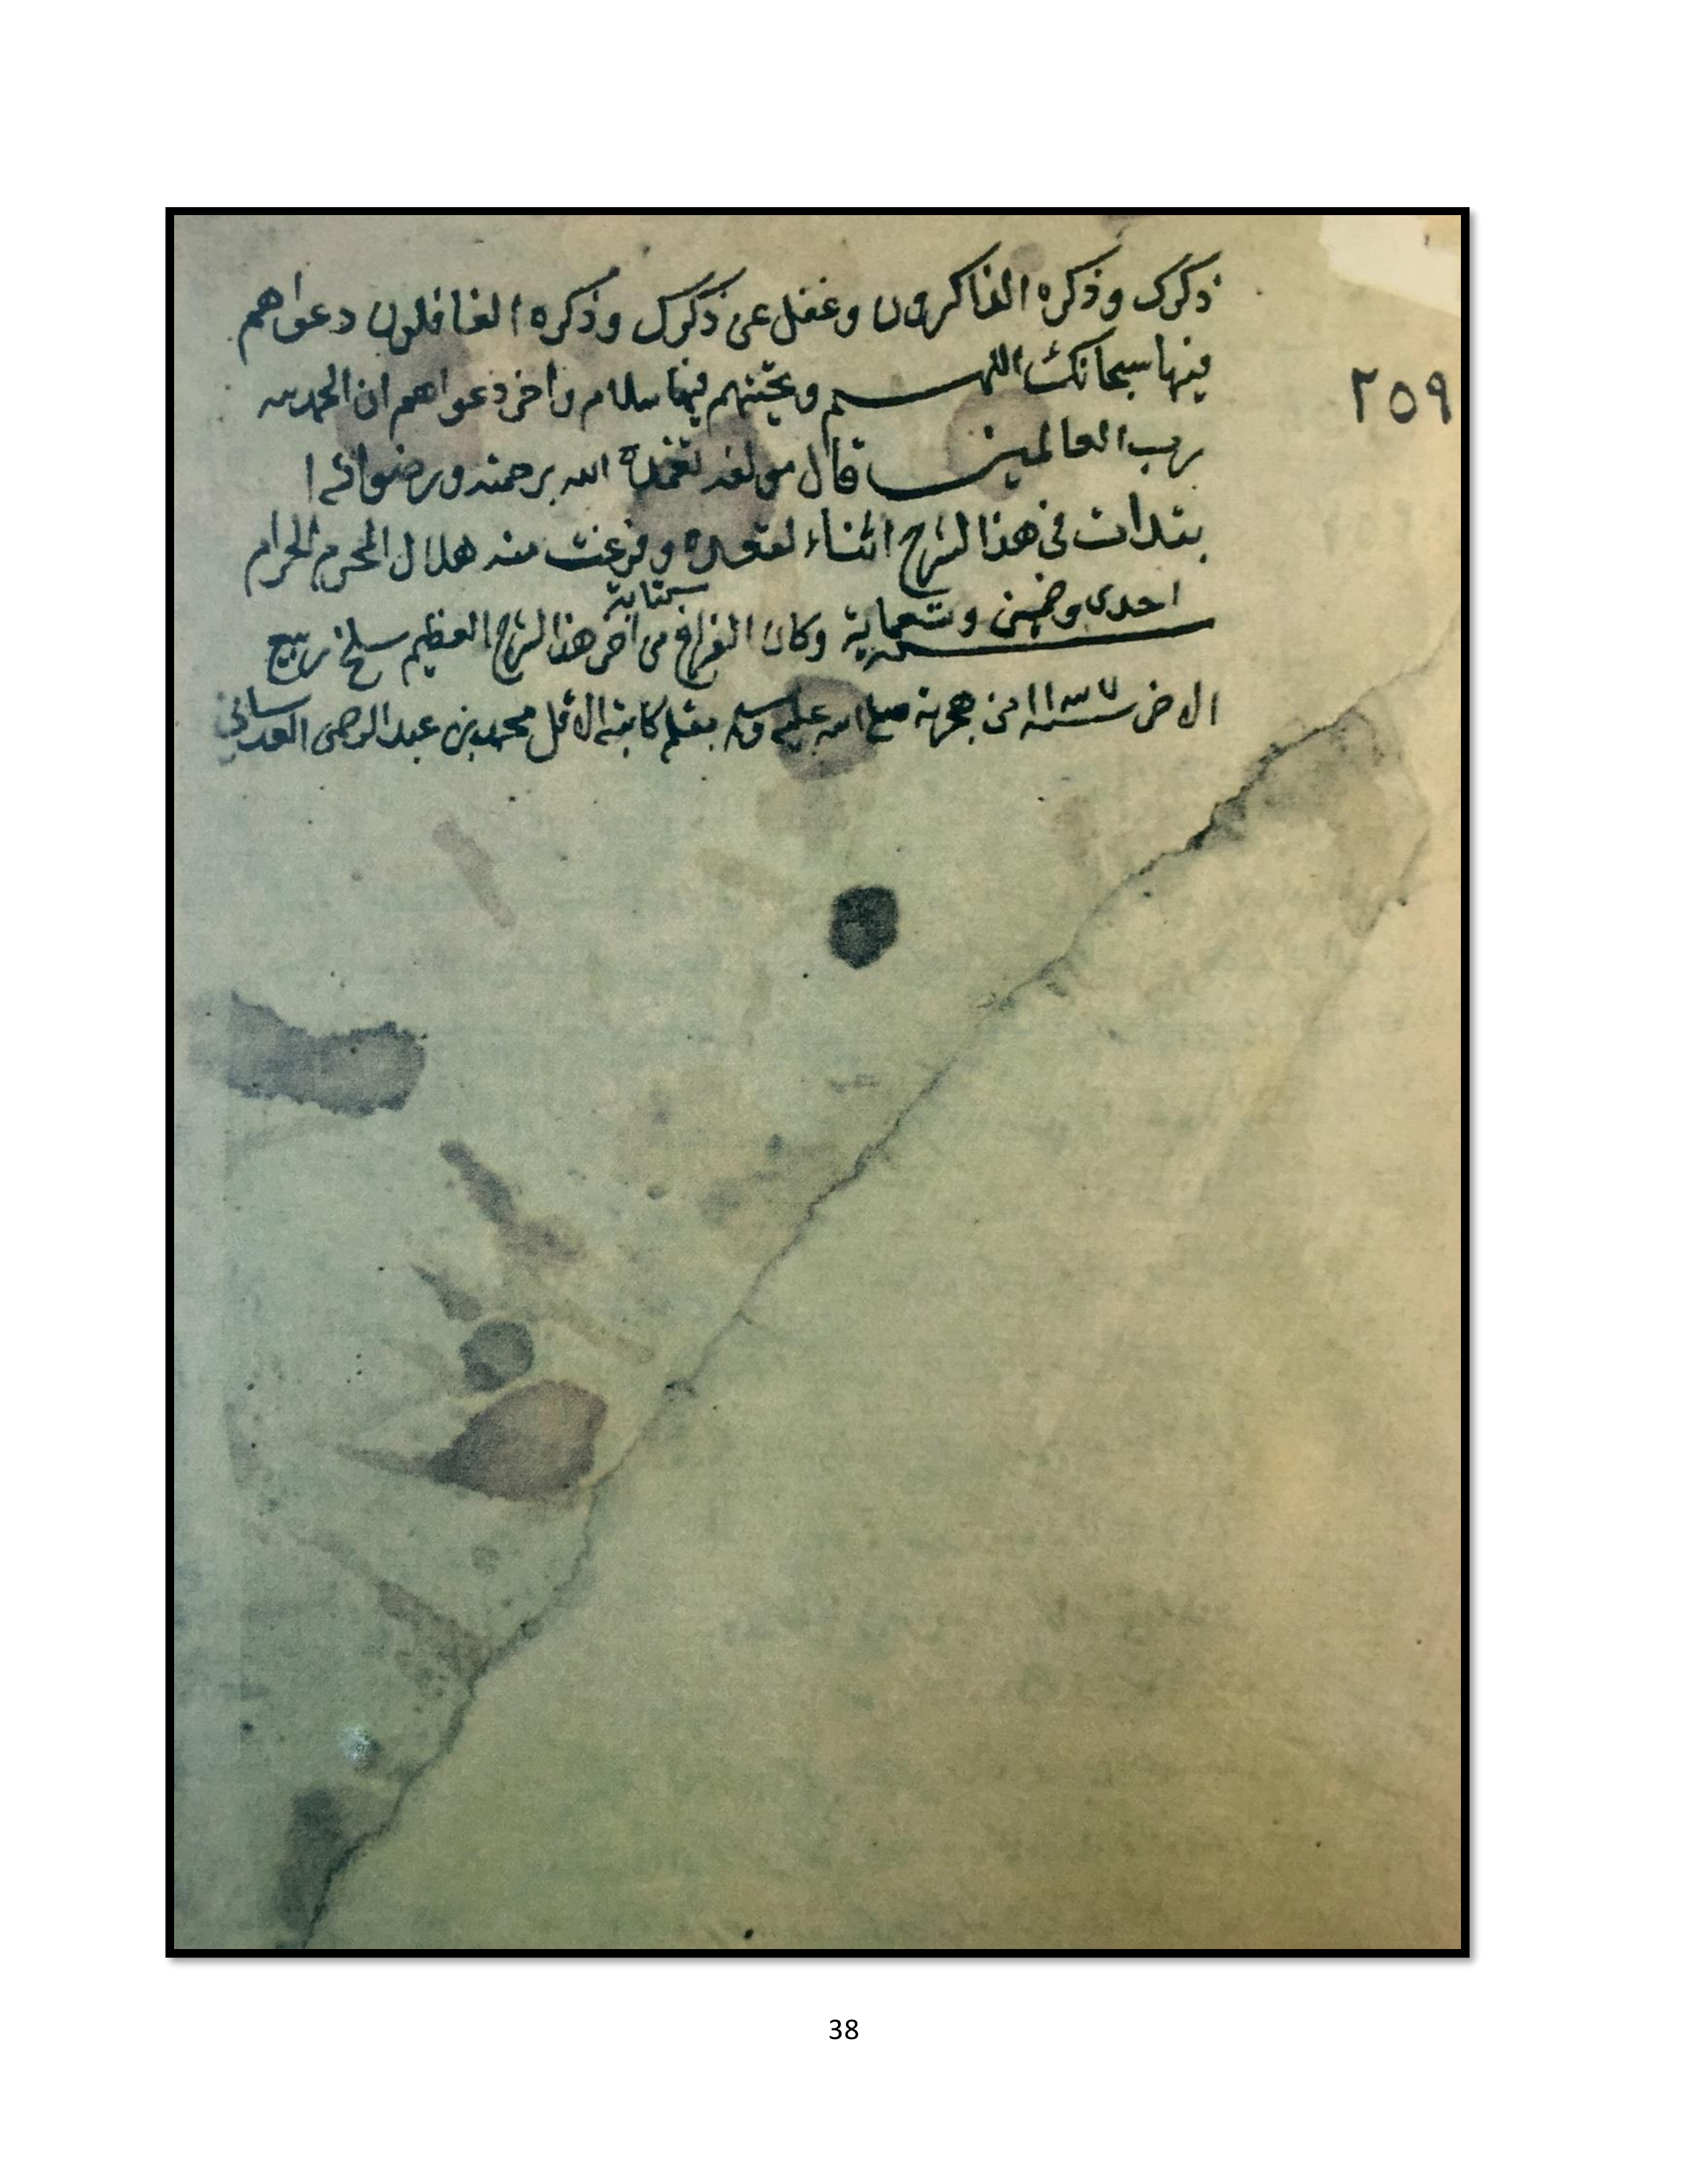 ذكرك وذكره الذاكرون وغفل عن ذكرك وذكره الغافلون دعواهم
فيها سبحانك اللهم وتحيتهم فيها سلام واخر دعواهم ان الحمد لله
٢٥٩
رب العالمين قال مولفه تغمده الله برحمته ورضوانه ا
بتدات في هذا الشرح اثناء القعده وفرغت منه هلال المحرم الحرام
احدى وخمسين وتسعماية وكان الفراغ من كتابة اخر هذا الشرح العظيم سلخ ربيع
الاخر سنة من هجرته صلى الله عليه وسلم بقلم كاتبه الاقل محمد بن عبد الرحمن
38